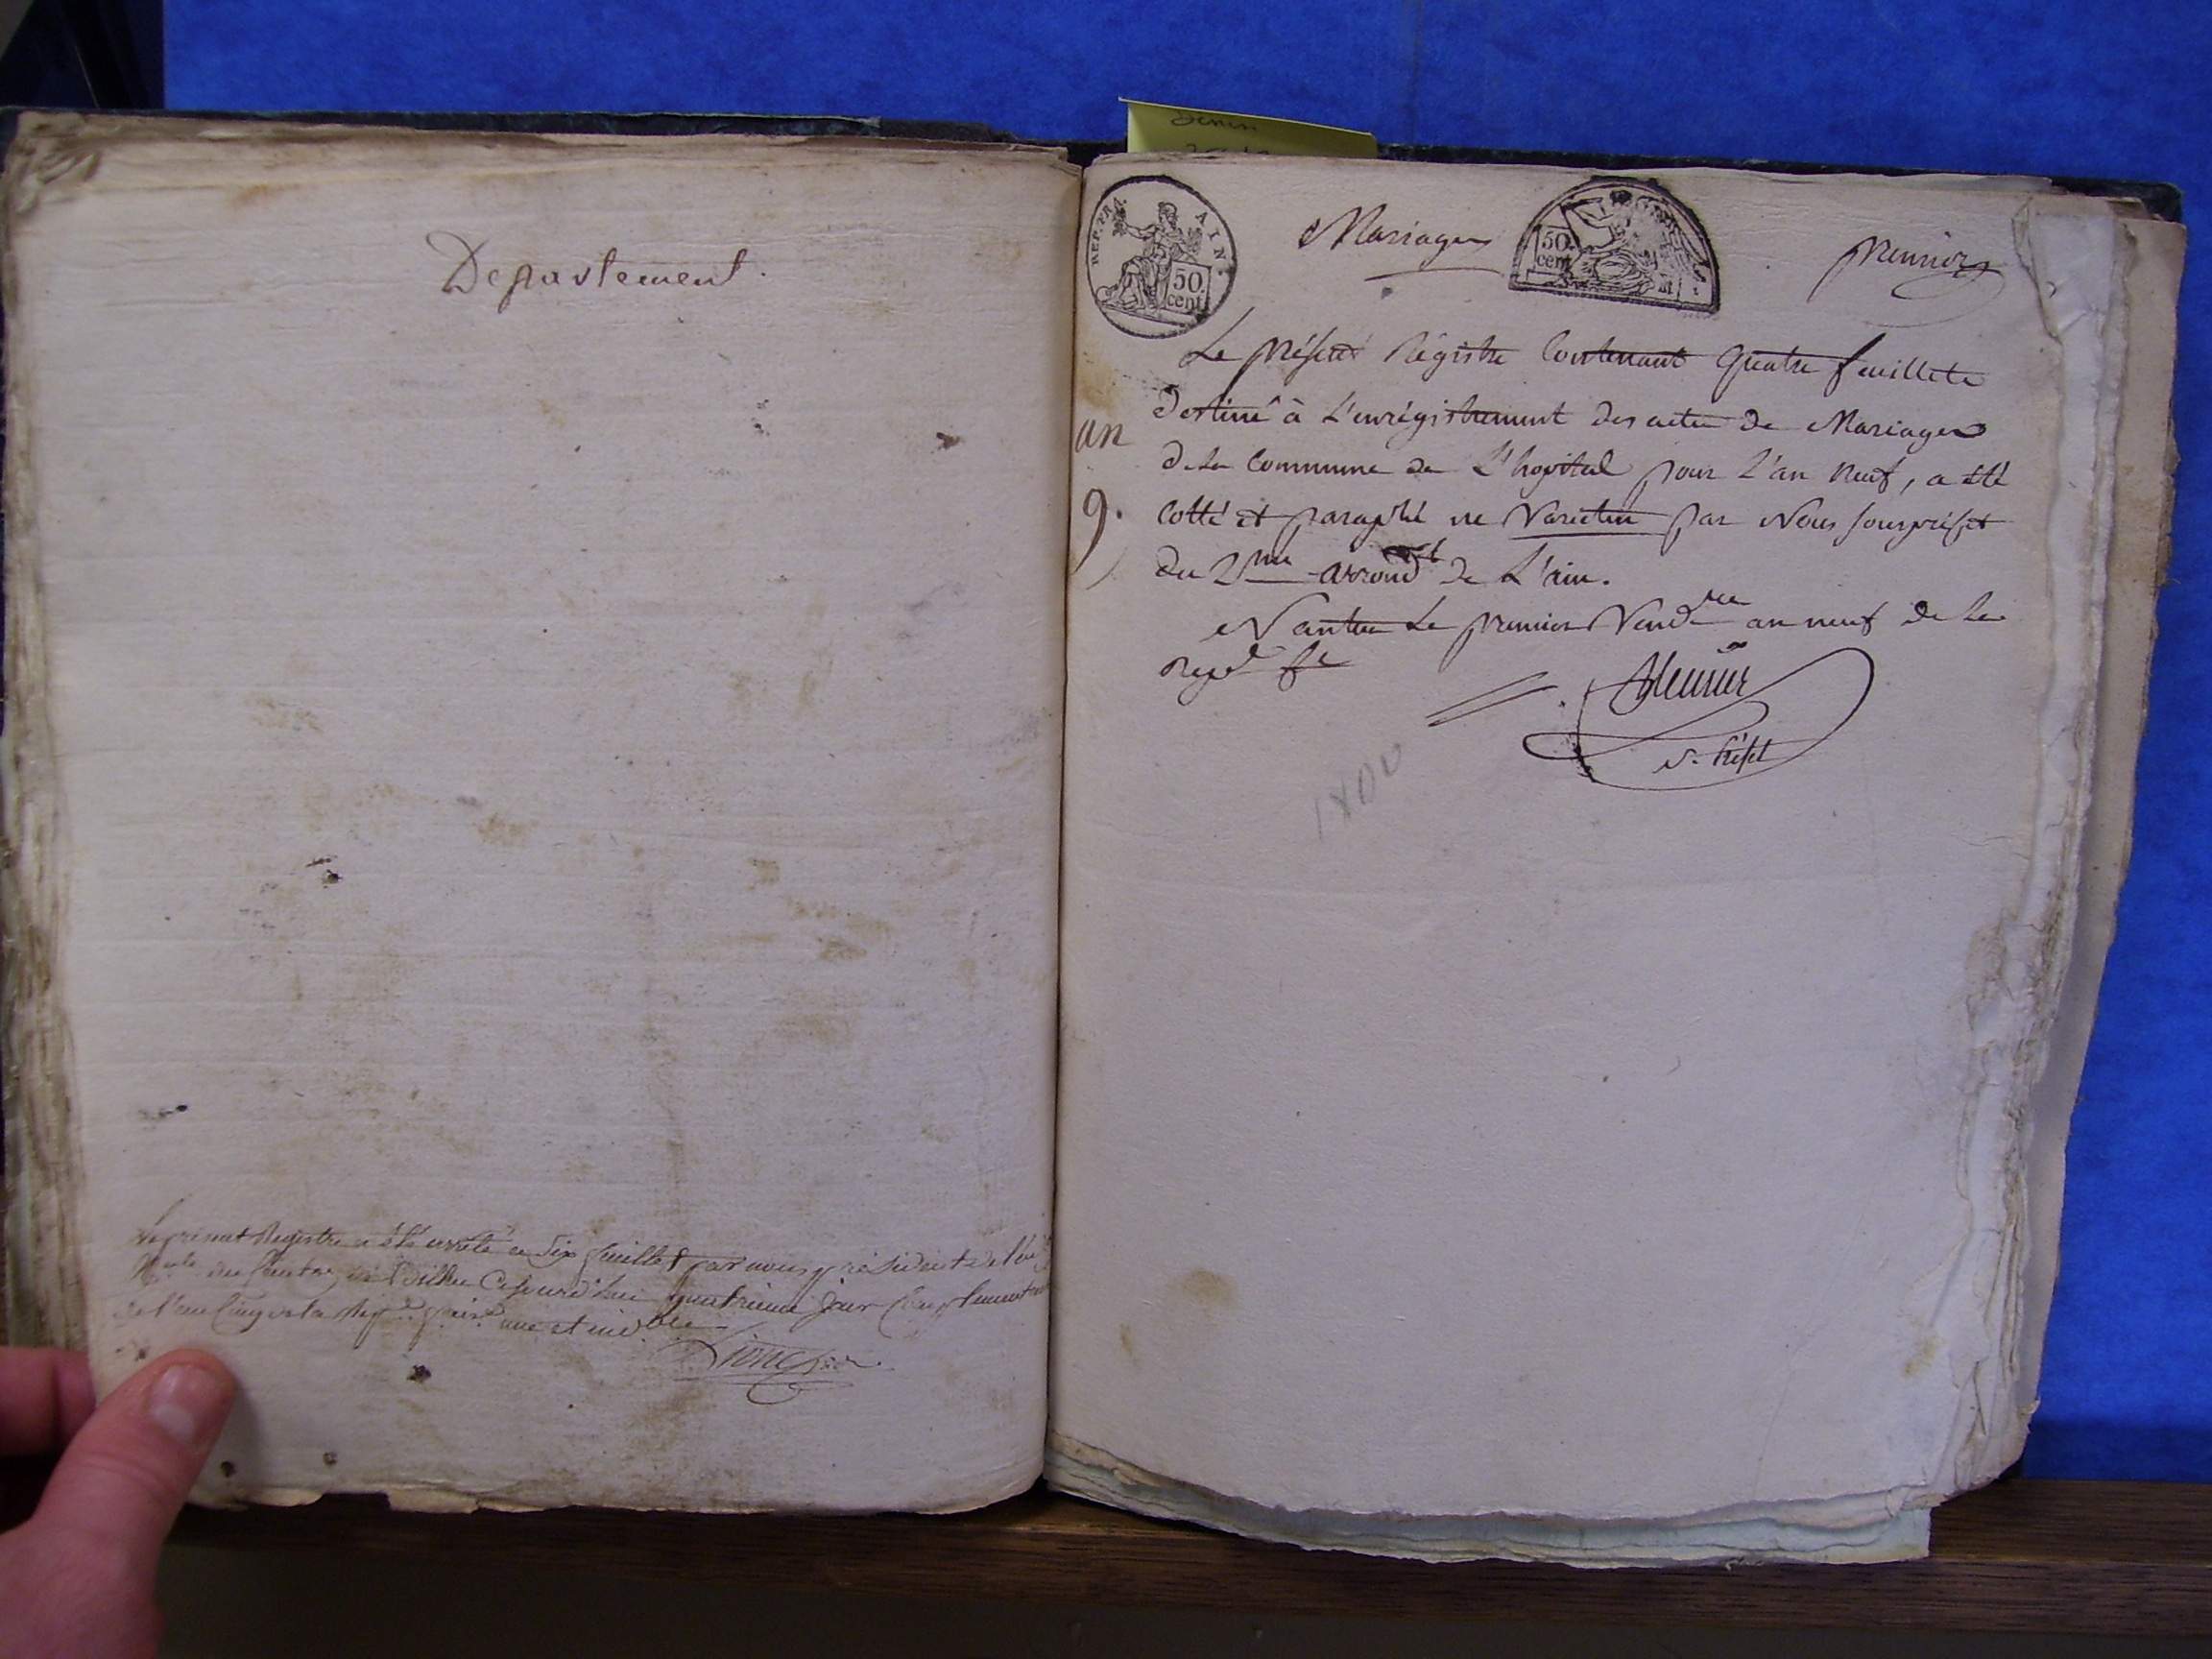 Departement.
Le présent Registre a été arrêté à Six feuillets par nous président de l'
du Canton de Cejourd'hui quatrieme jour Complementaire
de l'an Cinq de la Rep.e une et indble
REP. FRA.
AIN.
50
cent
Mariages
50
cent
premier
an
9.
Le présent Régistre Contenant quatre feuillets
destiné à L'enrégistrement des actes de Mariages
de la Commune de L'hopital pour L'an neuf, a été
Cotté et paraphé ne Varietur par Nous souspréfet
du 2me arrondt de L'ain.
Nantua Le premier Vendre an neuf de la
Repe fe
S. Préfet
1800